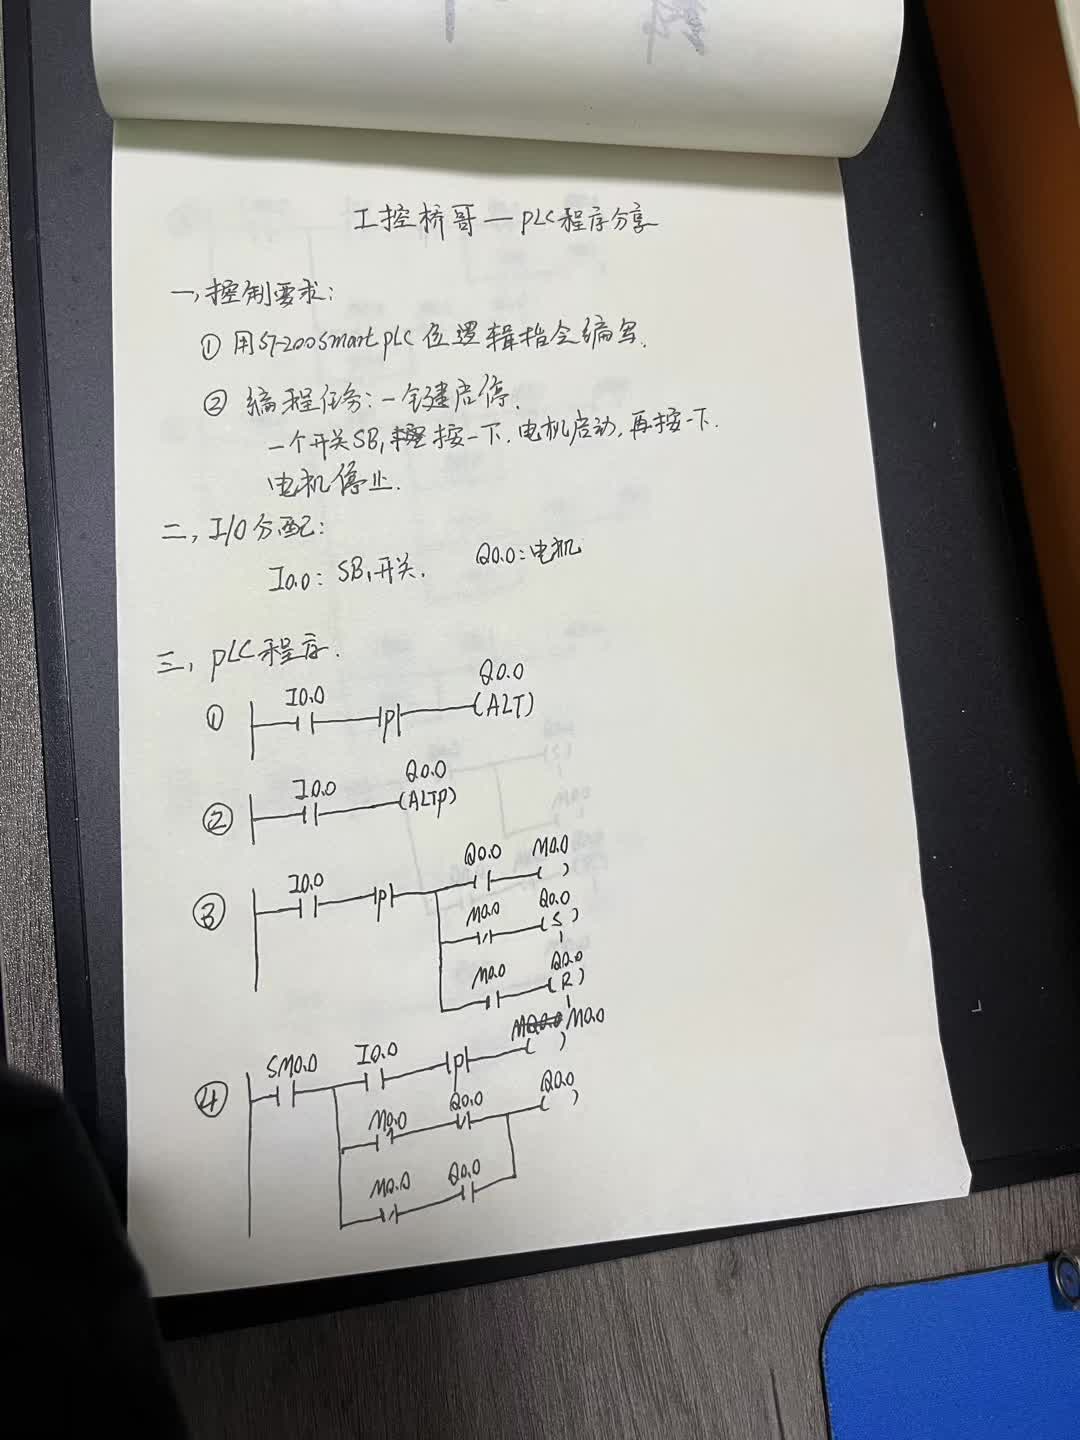 工控桥哥—PLC程序分享
一,控制要求:
① 用S7-200smart PLC 位逻辑指令编写.
② 编程任务:一键启停.
一个开关SB1,按一下.电机启动,再按一下.
电机停止.
二,I/O分配:
I0.0: SB1开关. Q0.0:电机
三,PLC程序.
① I0.0 P Q0.0
(ALT)
② I0.0 Q0.0
(ALTP)
③ I0.0 P Q0.0 M0.0
M0.0 Q0.0
(S)
1
M0.0 Q0.0
(R)
1
④ SM0.0 I0.0 P M0.0
M0.0 Q0.0 Q0.0
M0.0 Q0.0